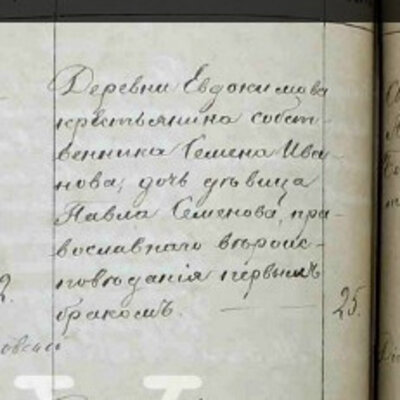 Деревни Евдокимова
крестьянина собст-
венника Семена Ива-
нова, дочь дѣвица
Павла Семенова, пра-
вославнаго вѣроис-
повѣданія первымъ
бракомъ.
25.
2.